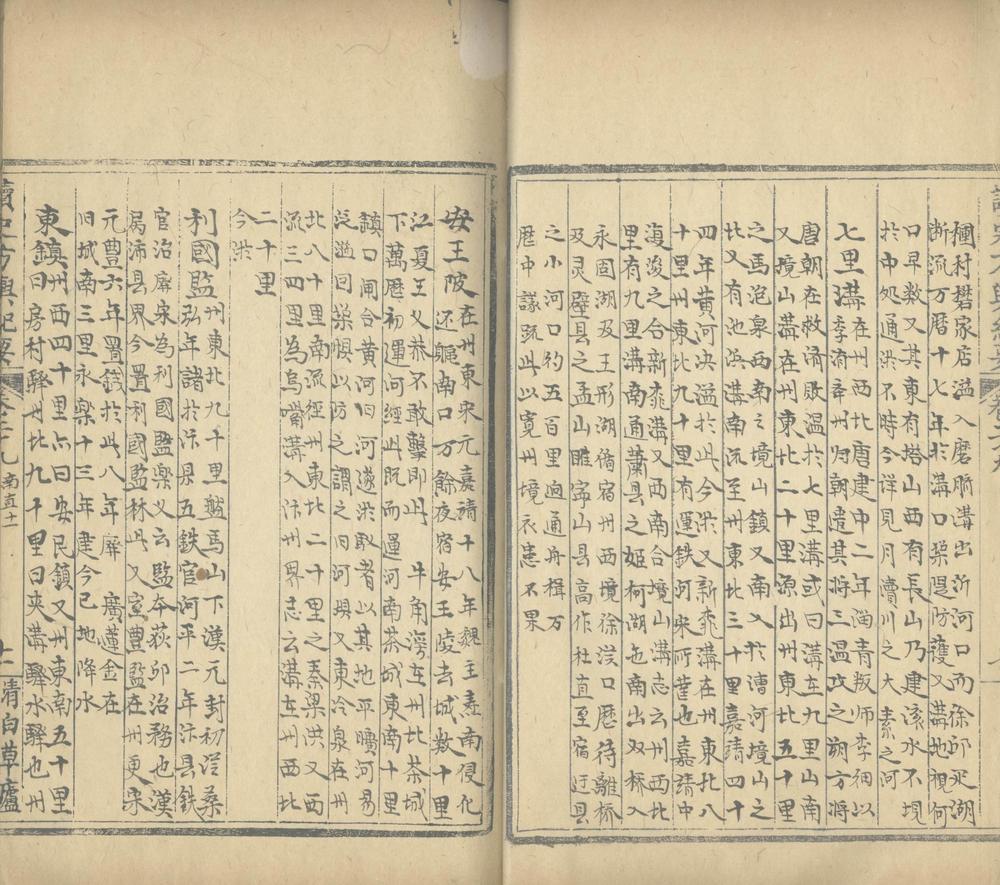 種村礬家店溢入磨脐溝出沂河口而徐邱灵湖
断流万曆十七年於溝口築隄防護又溝地視何
口早数又其東有塔山西有長山乃建滚水不垻
於中処通洪不時今详見月瀆川之大素之河
七里溝在州西北唐建中二年淄青叛师李纳以
李淯
唐朝在救済敗温於七里溝或曰溝在九里山南
又境山溝在州東北二十里源出州東北五十里
之馬泡泉西南之境山鎮又南入於漕河境山之
北又有池浜溝南流至州東北三十里嘉靖四十
四年黄河决溢於此今洪又新溝在州東北八
十里州東北九十里有運鉄河宋所也嘉靖中
復浚之合新溝又西南合境山溝志云州西北
里有九里溝南通蕭县之姬柯湖也南出双桥入
永固湖及王形湖俻宿州西境徐口歷待離桥
及灵壁县之孟山睢寧山县高作社直至宿迁县
之小河口约五百里逈通舟楫万
歴中議疏此以寬州境衣患不果
安王陂在州東宋元嘉靖十八年魏主燾南侵化
还龜南口万餘夜宿安王陵去城数十里
江夏王义恭不敢擊即此牛角湾在州比茶城
下萬歷初運河經此既而運河南茶城東南十里
鎮口闸台黄河旧河遂淤取者以其地平曠河易
泛溢回築惧以防之謂之旧河垻又東冷泉在州
北八十里南流经州東北二十里之秦梁洪又西
流三四里為烏嘴溝入汴州界志云溝在州西北
二十里
今淤
利國監州東北九千里盤馬山下漢元封初泛桑
弘年諸於汴县五鉄官河平二年汴县鉄
官沼廨宋為利國監樂义云监夲荻邜沼務也漢
属沛县界今置利國监林此又宣豊监在州更宋
元豊六年置鉄於此八年廨廣運金在
旧城南三里永楽十三年建今已地降水
東鎮州西四十里六曰安民鎮又州東南五十里
曰房村驛州北九十里曰夹溝驛水驛也州
讀史方輿紀要
卷二十九
南直十一
十一
清白草廬